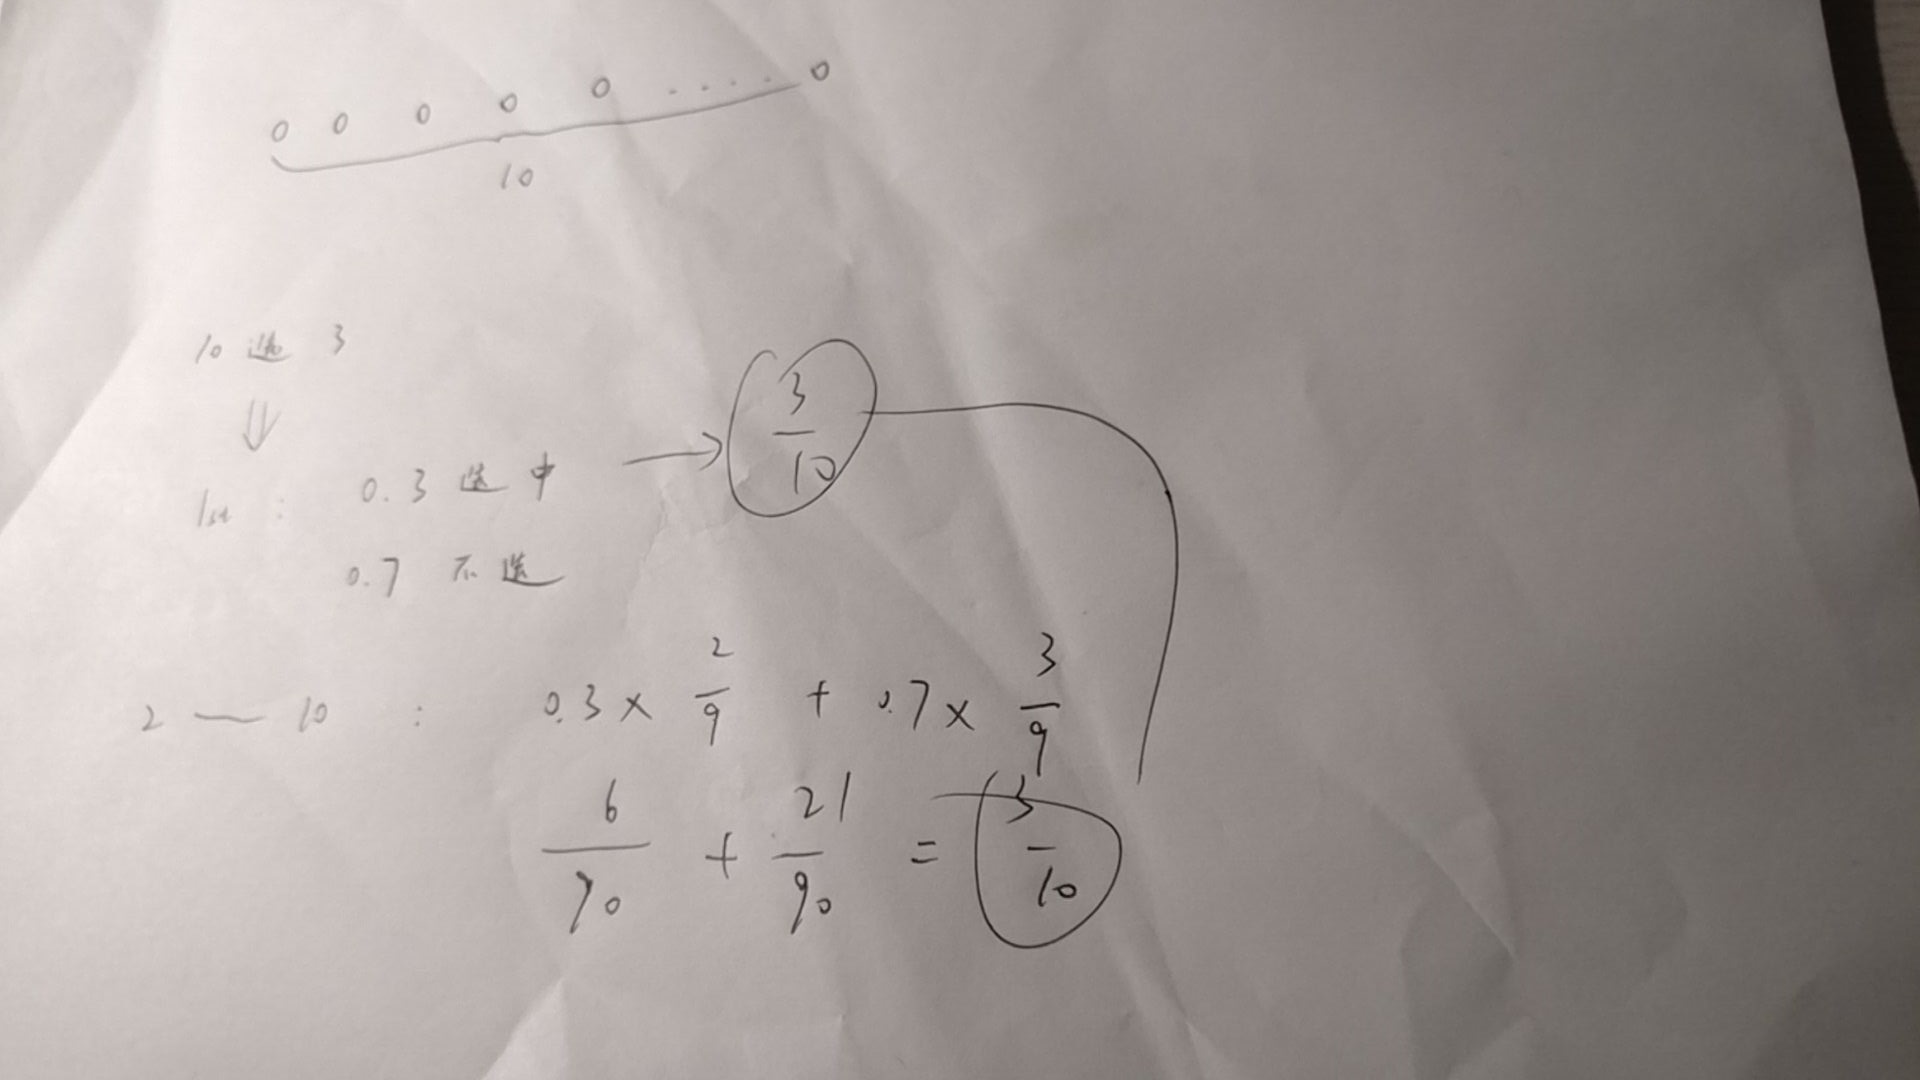 0 0 0 0 0 ..... 0
10
10 选 3
⇓
1st : 0.3 选中 → 3/10
0.7 不选
2 — 10 : 0.3 × 2/9 + 0.7 × 3/9
6/90 + 21/90 = 3/10